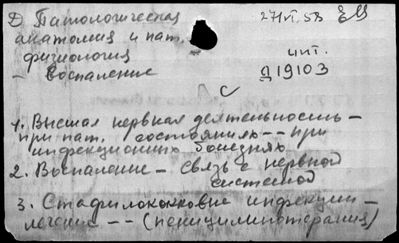 Д Патологическая
анатомия и пат.
физиология
- Воспаление
27/VI. 53
чит.
Д19103
С
1. Высшая нервная деятельность -
при пат. состояниях -- при
инфекционных болезнях
2. Воспаление - связь с нервной
системой
3. Стафилококковые инфекции -
лечение -- (пенициллинотерапия)